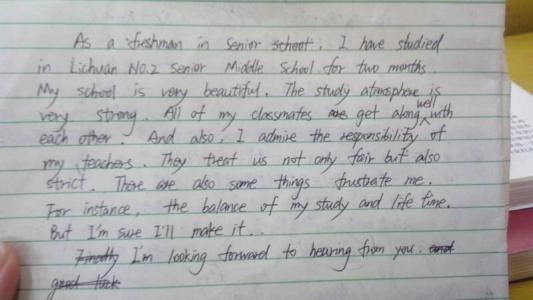 As a freshman in senior school, I have studied
in Lichuan No.2 Senior Middle School for two months.
My school is very beautiful. The study atmosphere is
very strong. All of my classmates are get along well with
each other. And also, I admire the responsibility of
my teachers. They treat us not only fair but also
strict. There are also some things frustrate me.
For instance, the balance of my study and life time.
But I'm sure I'll make it..
Finally I'm looking forward to hearing from you. and
good luck